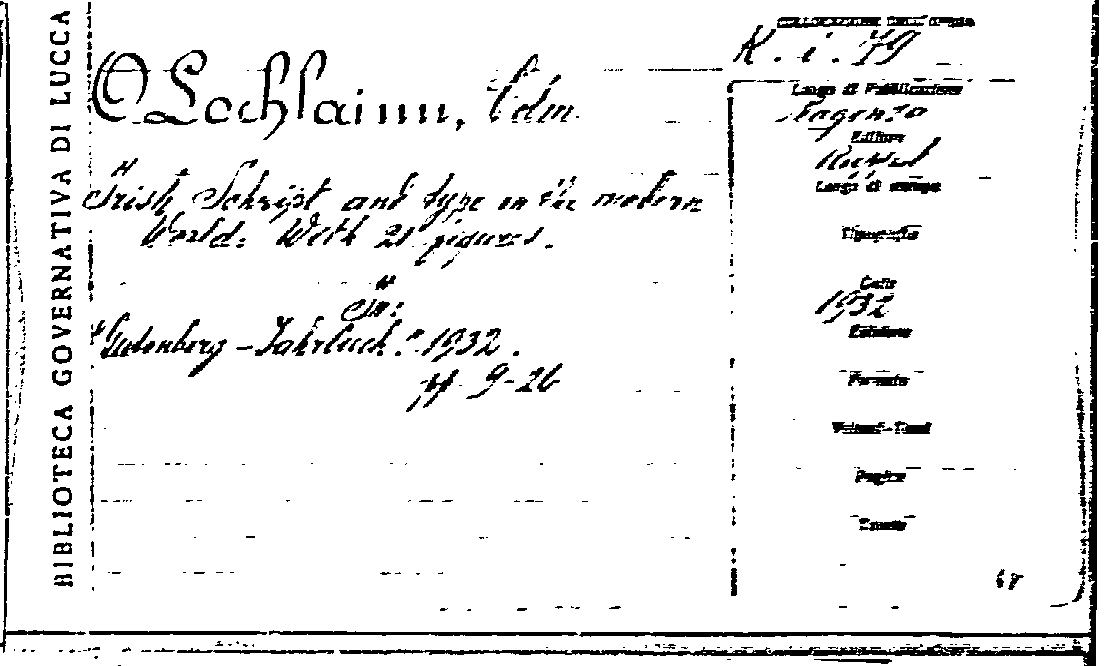 BIBLIOTECA GOVERNATIVA DI LUCCA
O Lochlainn, Edm.
Irish Schript and type in the modern
World. With 21 figures.
In:
"Gutenberg-Jahrbuch". 1932.
pp. 9-26
COLLOCAZIONE DELL'OPERA
K. i. 79
Luogo di Pubblicazione
Editore
Luogo di stampa
Tipografia
Data
1932
Edizione
Formato
Volumi-Tomi
Pagine